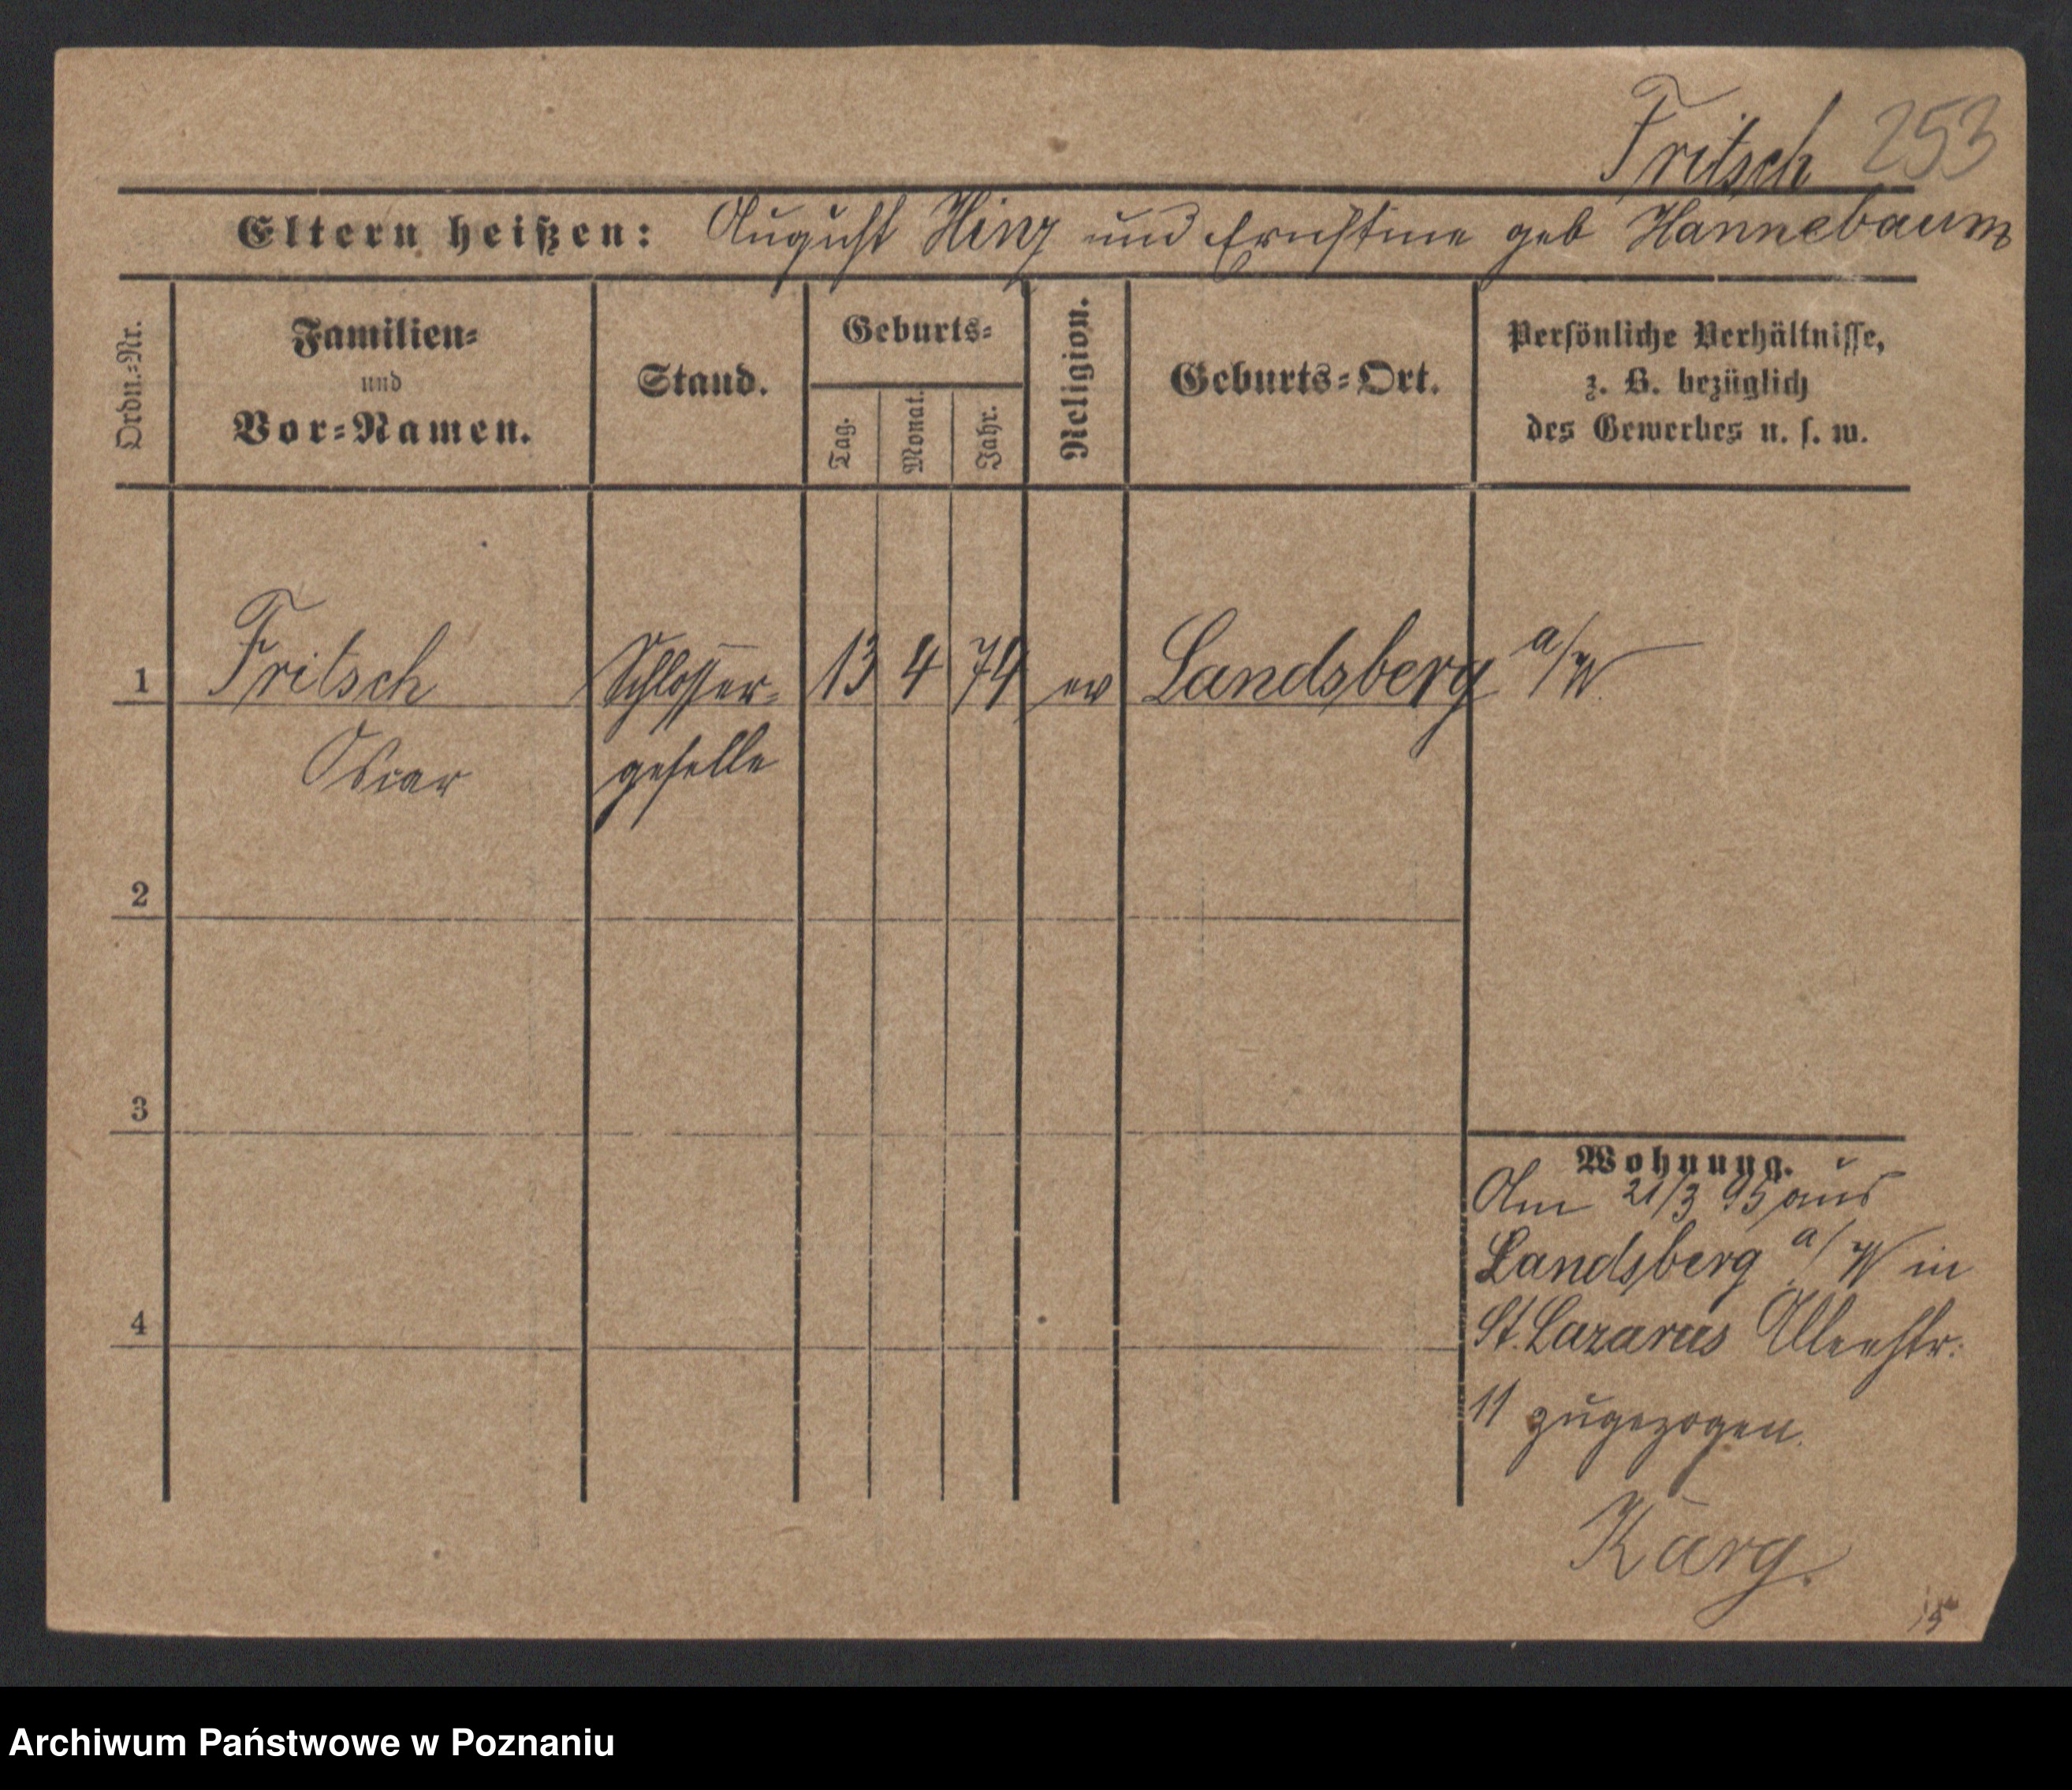 Fritsch 253
Eltern heißen: August Hinz und Ernstine geb Hannebaum
Ordn.-Nr.
Familien-
und
Vor-Namen.
Stand.
Geburts-
Tag.
Monat.
Jahr.
Religion.
Geburts-Ort.
Persönliche Verhältnisse,
z. B. bezüglich
des Gewerbes u. s. w.
1 Fritsch Schlosser- 13 4 74 ev Landsberg a/W.
Oscar geselle
2
3
4
Wohnung.
Am 21/3 95 aus
Landsberg a/W in
St. Lazarus Alleestr.
11 zugezogen.
Karg.
Archiwum Państwowe w Poznaniu